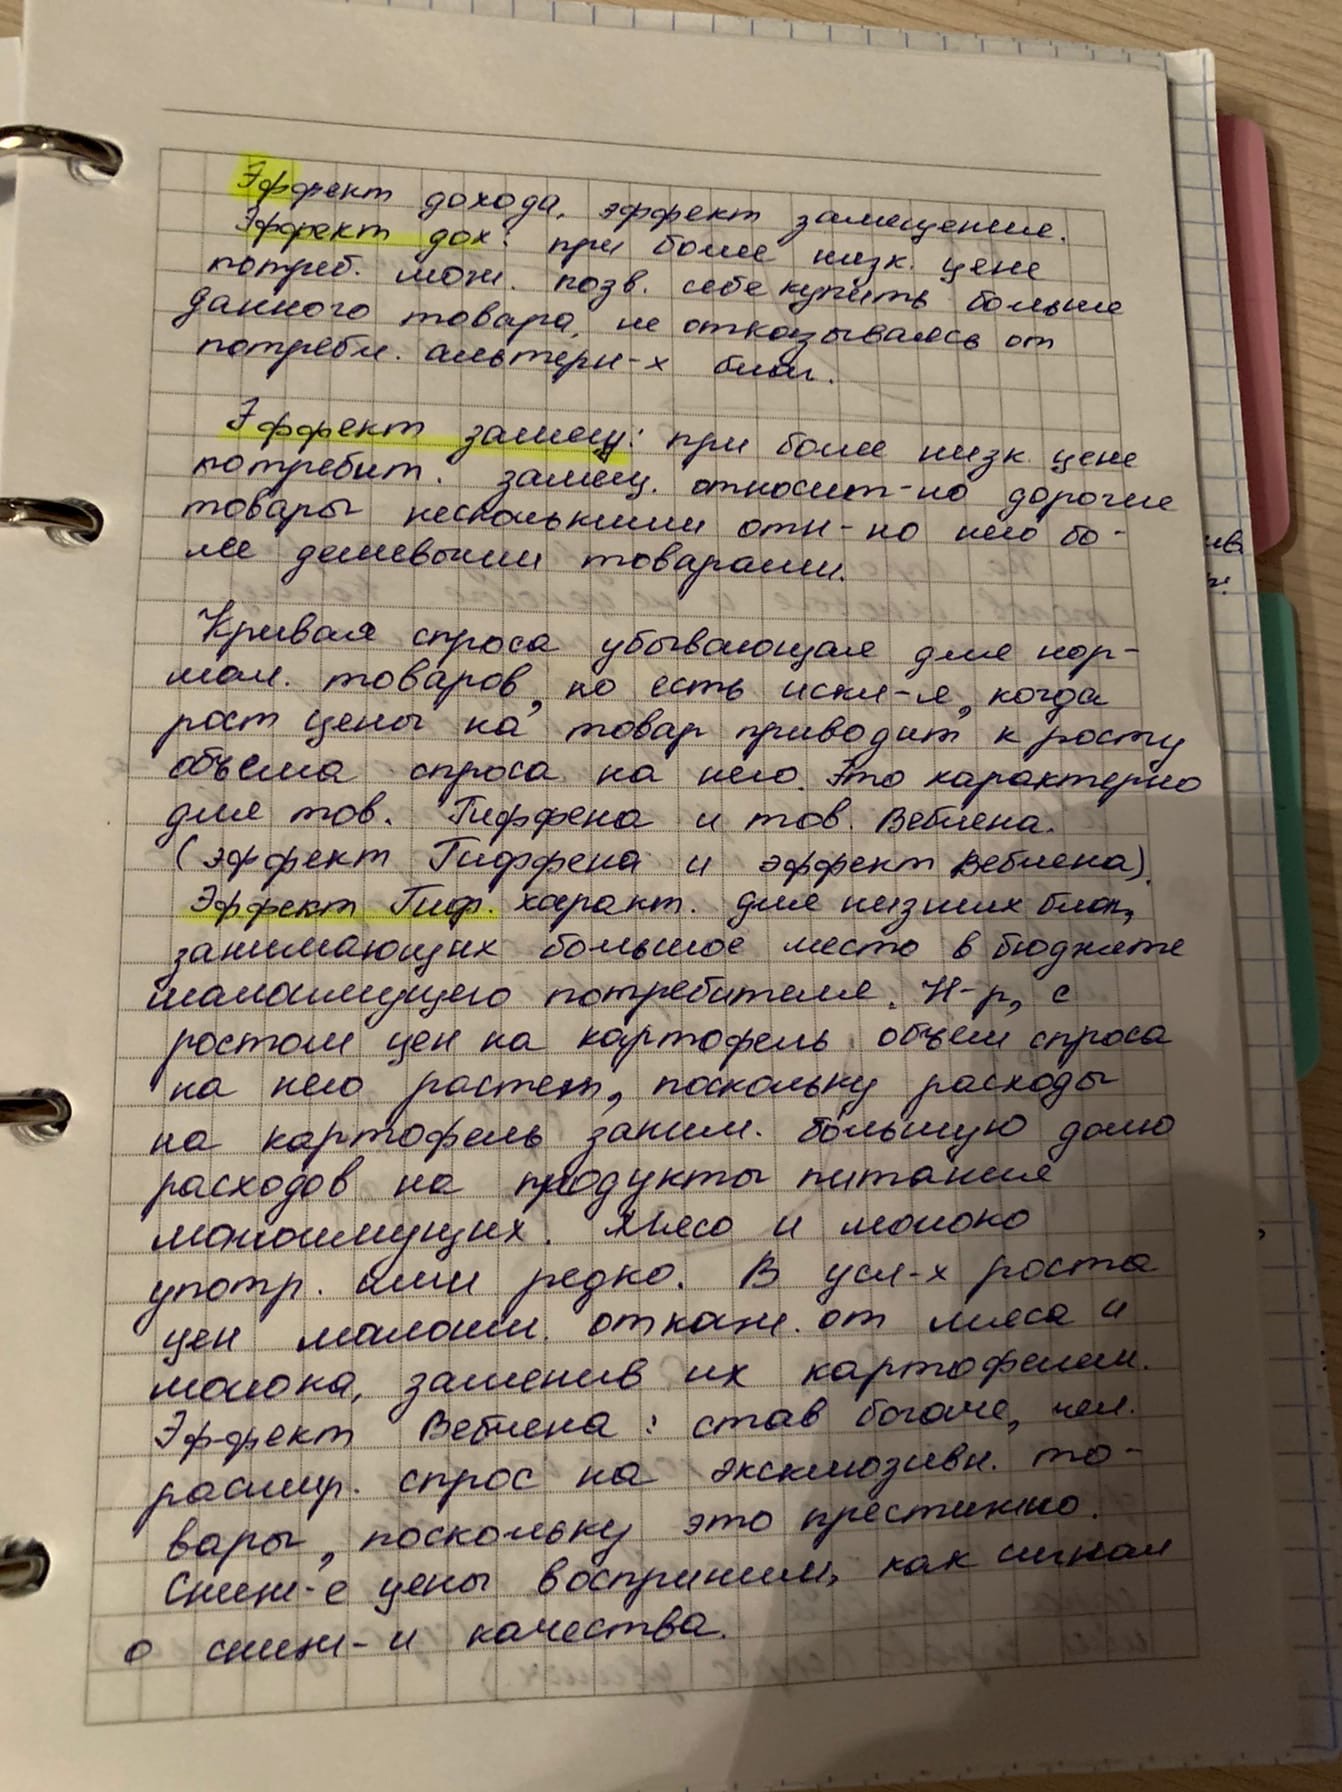 Эффект дохода, эффект замещения.
Эффект дох: при более низк. цене
потреб. мож. позв. себе купить больше
данного товара, не отказываясь от
потребл. альтерн-х благ.
Эффект замещ: при более низк. цене
потребит. замещ. относит-но дорогие
товары несколькими отн-но него бо-
лее дешевыми товарами.
Кривая спроса убывающая для нор-
мал. товаров, но есть искл-я, когда
рост цены на товар приводит к росту
объема спроса на него. Это характерно
для тов. Гиффена и тов. Веблена.
(эффект Гиффена и эффект Веблена).
Эффект Гиф. характ. для низших благ,
занимающих большое место в бюджете
малоимущего потребителя. Н-р, с
ростом цен на картофель объем спроса
на него растет, поскольку расходы
на картофель заним. большую долю
расходов на продукты питания
малоимущих. Мясо и молоко
употр. ими редко. В усл-х роста
цен малоим. откаж. от мяса и
молока, заменив их картофелем.
Эффект Веблена: став богаче, чел.
расшир. спрос на эксклюзивн. то-
вары, поскольку это престижно.
Сниж-е цены восприним, как сигнал
о сниж-и качества.